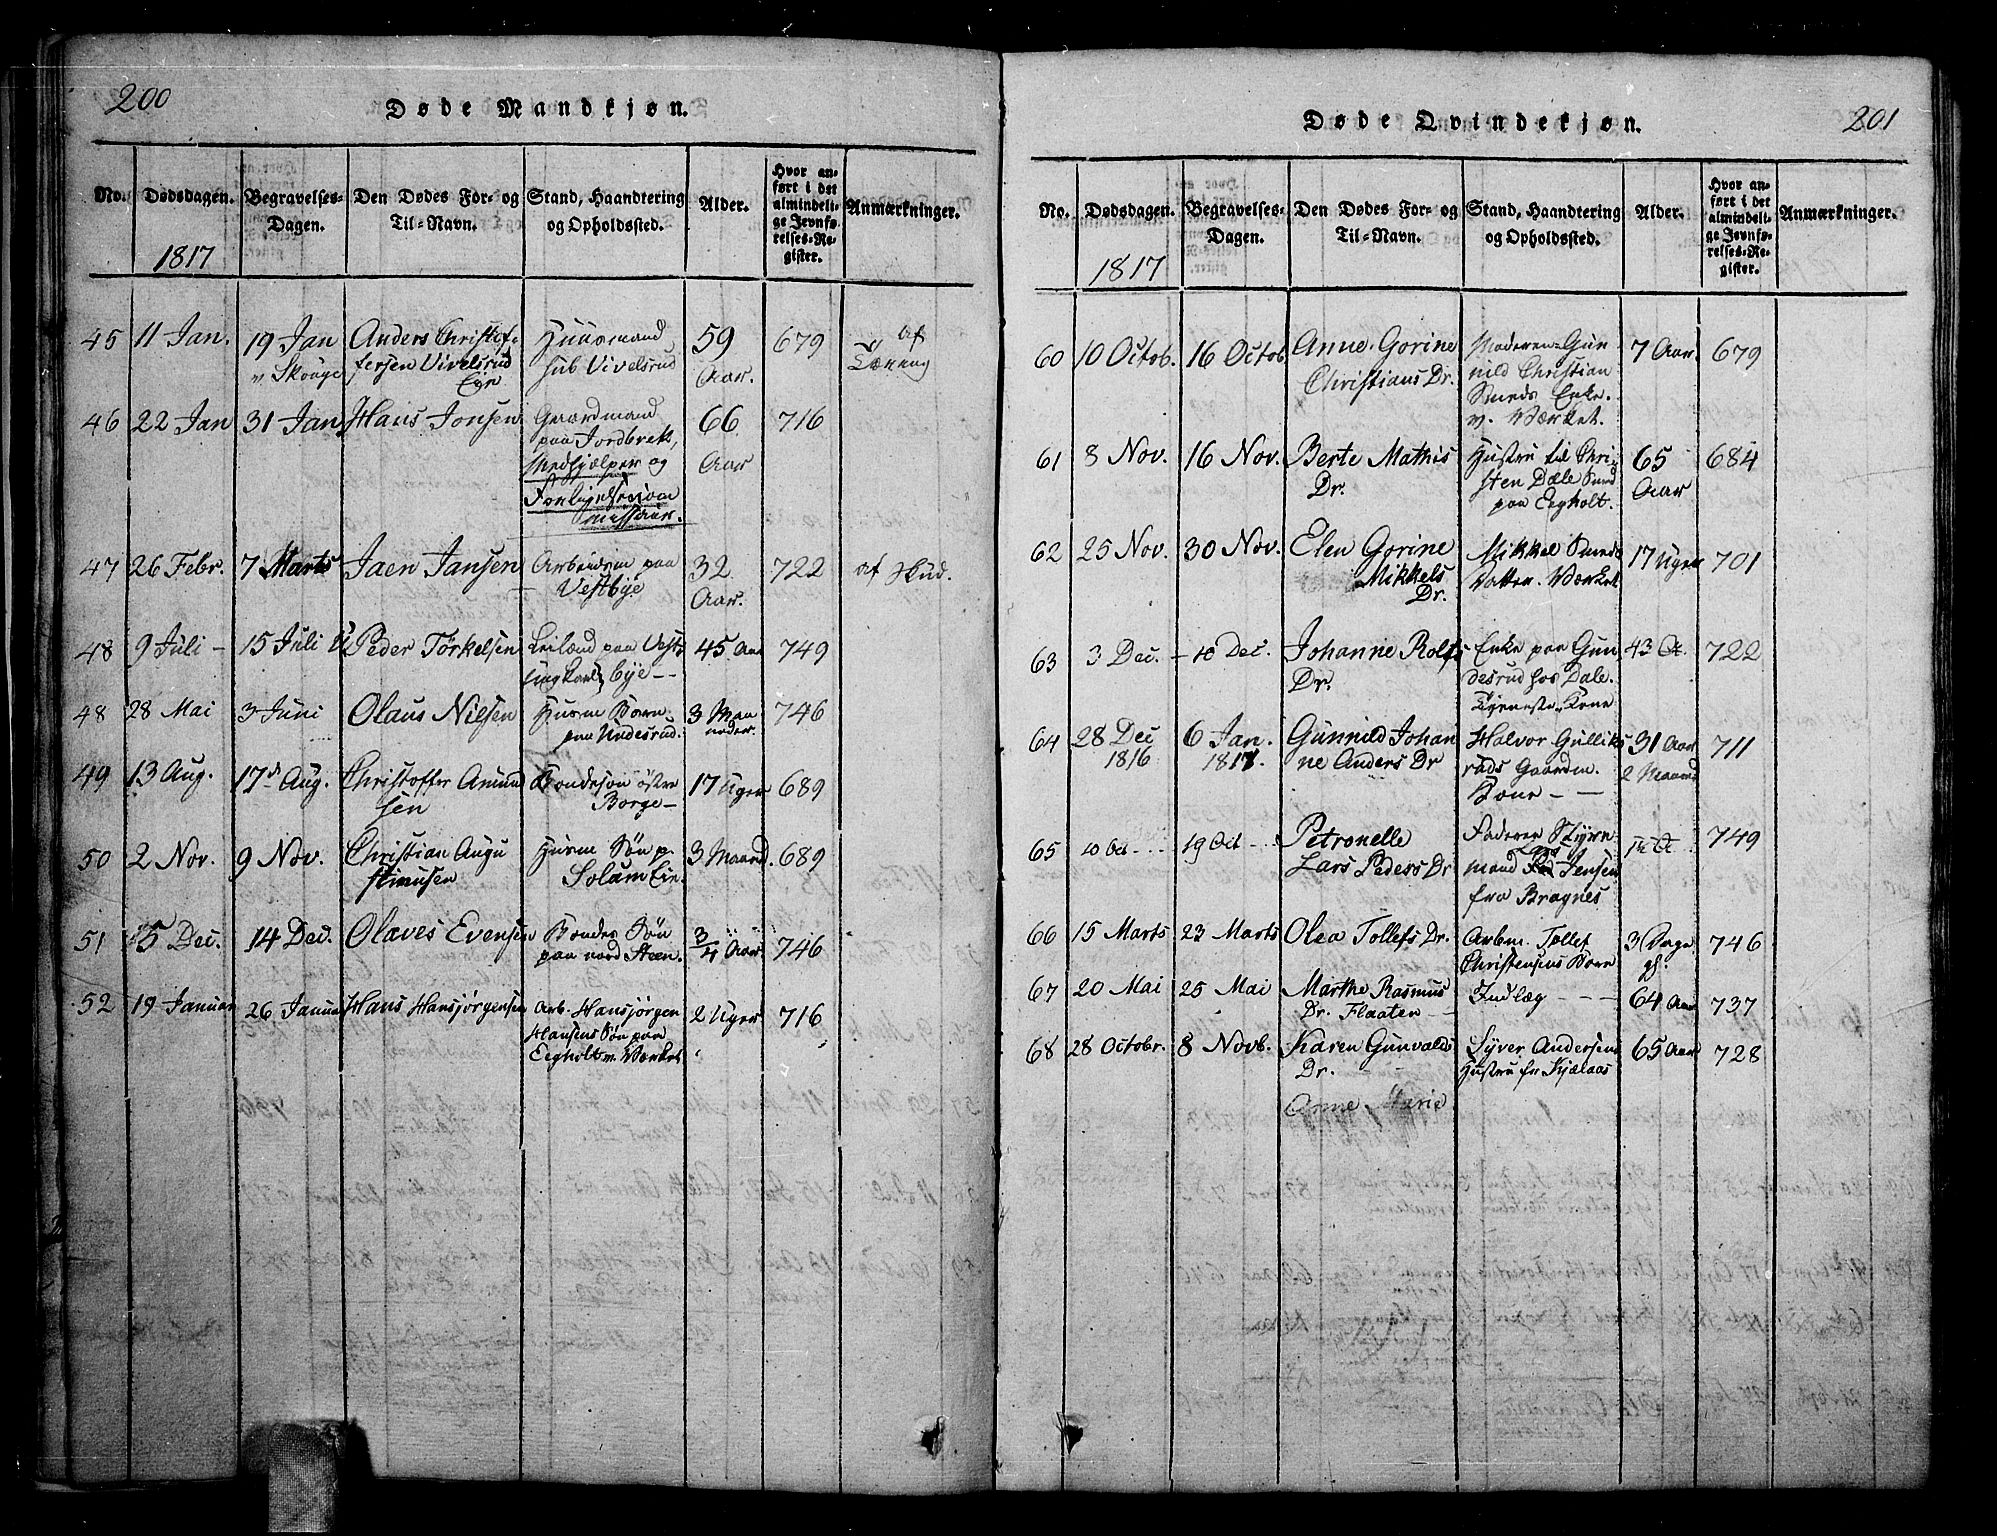 200
Døde Mandkjøn.
No. Dødsdagen. Begravelses-Dagen. Den Dødes For- og Til-Navn. Stand, Haandtering og Opholdssted. Alder. Hvor anført i det almindelige Jevnførelses-Register. Anmærkninger.
1817
45 11 Jan. 19 Jan Anders Christof- Huusmand 59 679 af
v. Skouge fersen Vivelsrud Vivelsrud Aar. Tæring
Eje
46 22 Jan 31 Jan Hans Jonsen Gaardmand 66 716
paa Jordbrek, Aar
Medhjælper og
Forligelsescom
missair.
47 26 Febr. 7 Marts Jaen Jansen Arbeidsm paa 32 722 af Skud.
Vestbye Aar.
48 9 Juli - 15 Juli Peder Torkelsen Leilænd paa Vest 45 Aar 749
bye - -
48 28 Mai 3 Juni Olaus Nilsen Husm Barn 3 Maa 746
paa Undesrud. neder
49 13 Aug. 17 Aug. Christoffer Amund Bondesøn østre 17 Uger 689
sen Borge -
50 2 Nov. 9 Nov. Christian Augu Husm Søn p. 3 Maaned 689
stinusen Solum Eie.
51 5 Dec. 14 Dec. Olaves Evensen Bondes Søn 3/4 Aar 746
paa nord Steen.
52 19 Januar 26 Januar Hans Hansjørgensen Arb. Hansjørgen 2 Uger 716
Hansens Søn paa
Eegholt v. Værket
201
Døde Qvindekjøn.
No. Dødsdagen. Begravelses-Dagen. Den Dødes For- og Til-Navn. Stand, Haandtering og Opholdssted. Alder. Hvor anført i det almindelige Jevnførelses-Register. Anmærkninger.
1817
60 10 Octob. 16 Octob Anne Gorine Moderen Gun 7 Aar 679
Christians Dr. nild Christian
Smeds Enke.
v. Værket.
61 8 Nov. 16 Nov. Berte Mathis Hustru til Chri- 65 684
Dr. sten Dale Smed Aar
paa Eegholt.
62 25 Nov. 30 Nov. Elen Gorine Mikkel Smeds 17 Uger 701
Mikkels Datter Værket
Dr.
63 3 Dec. - 10 Dec. Johanne Rolfs Enke paa Gun 43 722
Dr. desrud hos Dale.
Tjeneste Kone
64 28 Dec 6 Jan. Gunnild Johan Halvor Gulliks 31 Aar 711
1816 1817. ne Anders Dr Gaardm. 2 Maaned
Kone - -
65 10 Oct - - 19 Oct - - Petronelle Faderen Styrm 749
Lars Peders Dr mand Lars Jensen
fra Bragnes
66 15 Marts 23 Marts Olea Tollefs Dr. Arbm. Tollef 3 Dage 746
Christensens Barn gl.
67 20 Mai 25 Mai Marthe Rasmus Indlæg - - - 64 Aar 737
Dr. Flaaten - -
68 28 Octobr. 8 Novb. Karen Gunvalds Syver Andersens 65 Aar 728
Dr. - - Hustru fr Kjælaas
Anne Marie